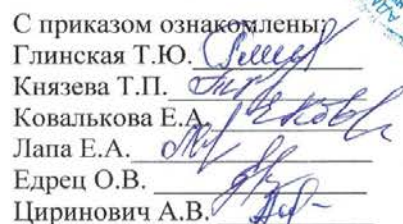 С приказом ознакомлены:
Глинская Т.Ю.
Князева Т.П.
Ковалькова Е.А.
Лапа Е.А.
Едрец О.В.
Циринович А.В.